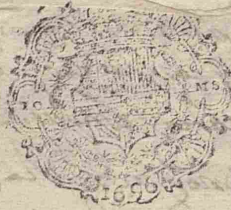 10 MS
1696